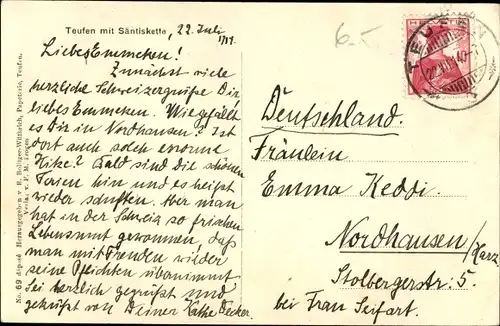 Teufen mit Säntiskette, 22. Juli
Liebes Emmeken!
Zunächst viele
herzliche Schweizergrüße Dir,
liebes Emmeken. Wie gefällt
es Dir in Nordhausen? Ist
dort auch solch enorme
Hitze? Bald sind die schönen
Ferien hin und es heißt
wieder schuften. Aber man
hat in der Schweiz so frischen
Lebensmut gewonnen, daß
man mit Freuden wieder
seine Pflichten übernimmt
Sei herzlich gegrüßt und
geküßt von Deiner Käthe Decker.
6.-
TEUFEN
Deutschland.
Fräulein
Emma Keddi.
Nordhausen/Harz
Stolbergerstr: 5.
bei Frau Seifart.
No. 69 Herausgegeben v. R. Bölliger-Wittörich, Papeterie, Teufen.
Verlag v. F. M.